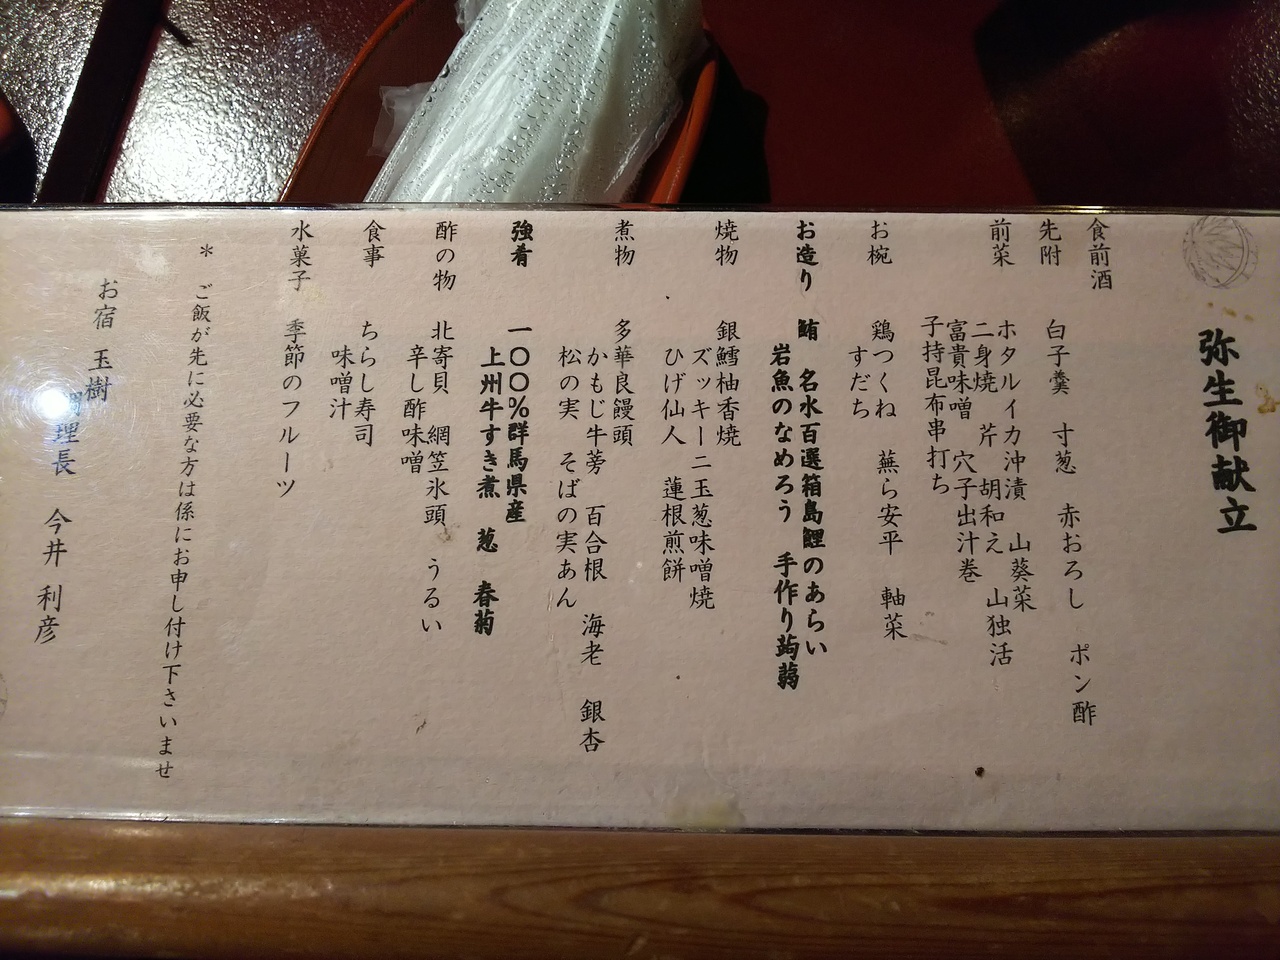 弥生御献立
食前酒
先附 白子羹 寸葱 赤おろし ポン酢
前菜 ホタルイカ沖漬 山葵菜
二身焼 芹 胡和え 山独活
富貴味噌 穴子出汁巻
子持昆布串打ち
お椀 鶏つくね 蕪ら安平 軸菜
すだち
お造り 鮪 名水百選箱島鯉のあらい
岩魚のなめろう 手作り蒟蒻
焼物 銀鱈柚香焼
ズッキーニ玉葱味噌焼
ひげ仙人 蓮根煎餅
煮物 多華良饅頭
かもじ牛蒡 百合根 海老 銀杏
松の実 そばの実あん
強肴 一〇〇%群馬県産
上州牛すき煮 葱 春菊
酢の物 北寄貝 網笠氷頭 うるい
辛し酢味噌
食事 ちらし寿司
味噌汁
水菓子 季節のフルーツ
* ご飯が先に必要な方は係にお申し付け下さいませ
お宿 玉樹
調理長 今井 利彦